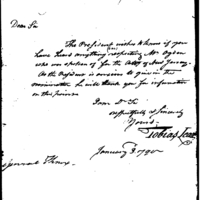 Dear Sir
The President wishes to know if you
have heard anything respecting Mr. Ogden
who was spoken of for the of New Jersey.
As the President is anxious to give in the
nominations he will thank you for information
on this
I am D. Sir
respectfully & sincerely
Yours
Tobias Lear
January 1790
General Knox